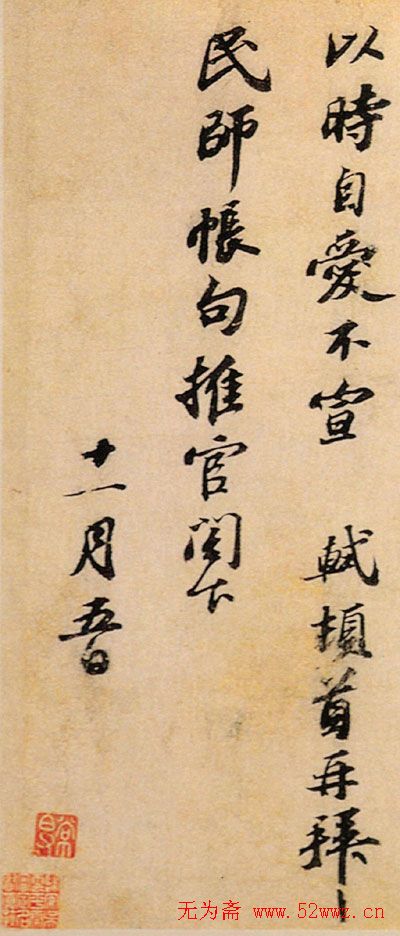 以時自愛不宣　軾頓首再拜
民師帳句推官閣下
十一月五日
无为斋 www.52wwz.cn